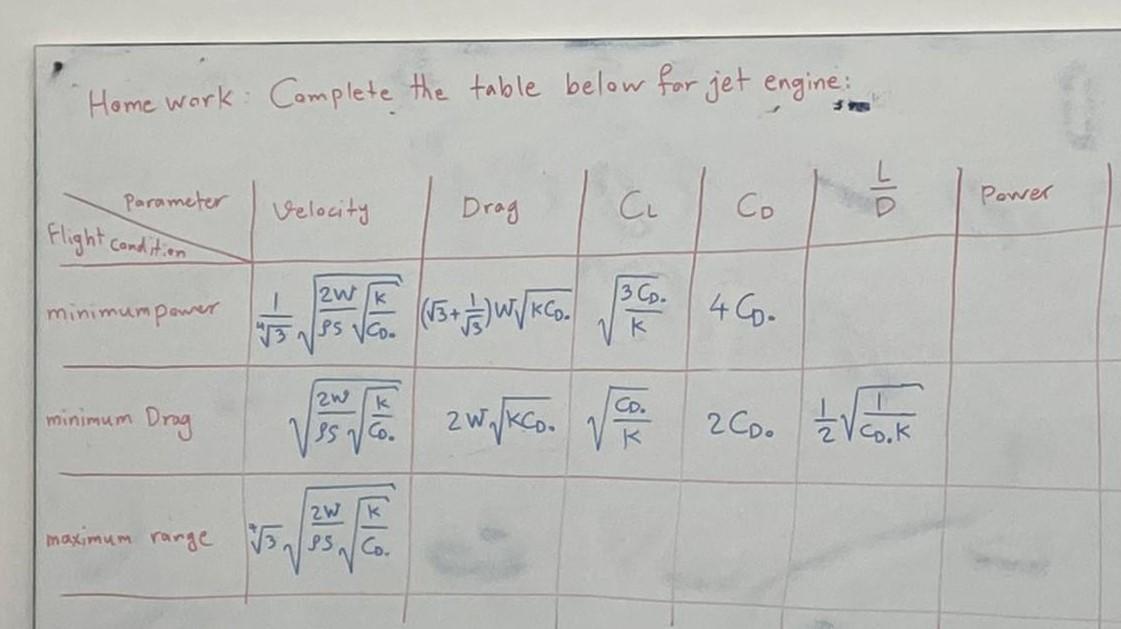 Home work: Complete the table below for jet engine:
Parameter
Flight condition
Velocity
Drag
CL
CD
L/D
Power
minimum power
1/∜3 √(2W/ρS √(K/CD₀))
(√3+1/√3)W√(KCD₀)
√(3CD₀/K)
4CD₀
minimum Drag
√(2W/ρS √(K/CD₀))
2W√(KCD₀)
√(CD₀/K)
2CD₀
1/2 √(1/(CD₀K))
maximum range
∜3 √(2W/ρS √(K/CD₀))